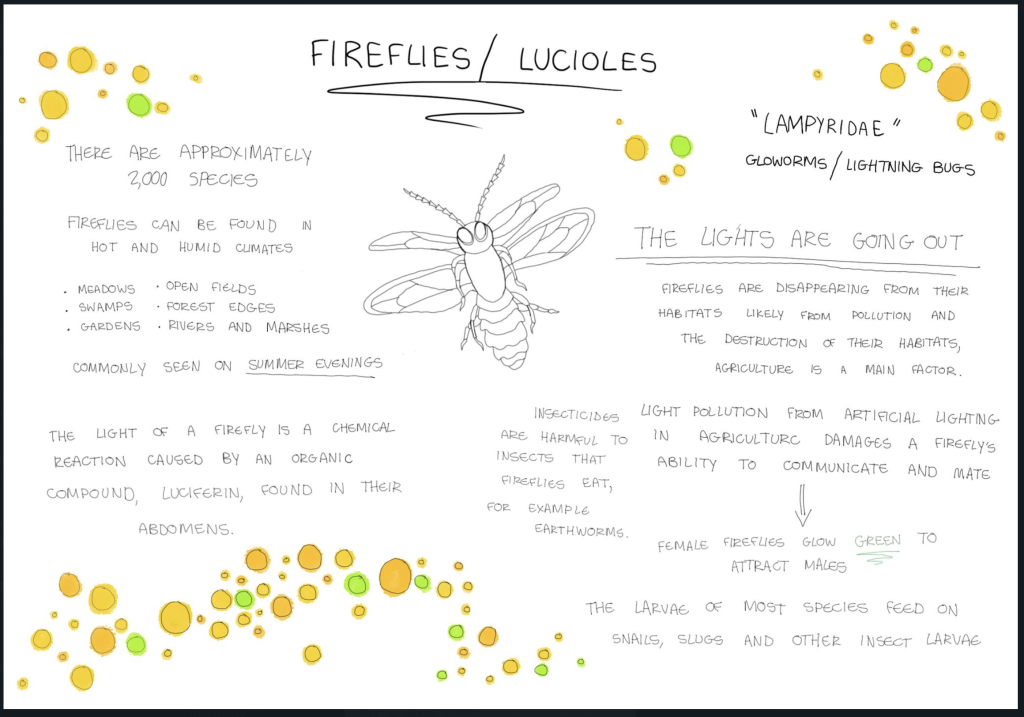 FIREFLIES/ LUCIOLES
"LAMPYRIDAE"
GLOWORMS/LIGHTNING BUGS
THERE ARE APPROXIMATELY
2,000 SPECIES
FIREFLIES CAN BE FOUND IN
HOT AND HUMID CLIMATES
. MEADOWS · OPEN FIELDS
. SWAMPS · FOREST EDGES
. GARDENS · RIVERS AND MARSHES
COMMONLY SEEN ON SUMMER EVENINGS
THE LIGHT OF A FIREFLY IS A CHEMICAL
REACTION CAUSED BY AN ORGANIC
COMPOUND, LUCIFERIN, FOUND IN THEIR
ABDOMENS.
THE LIGHTS ARE GOING OUT
FIREFLIES ARE DISAPPEARING FROM THEIR
HABITATS LIKELY FROM POLLUTION AND
THE DESTRUCTION OF THEIR HABITATS,
AGRICULTURE IS A MAIN FACTOR.
INSECTICIDES
ARE HARMFUL TO
INSECTS THAT
FIREFLIES EAT,
FOR EXAMPLE
EARTHWORMS.
LIGHT POLLUTION FROM ARTIFICIAL LIGHTING
IN AGRICULTURE DAMAGES A FIREFLY'S
ABILITY TO COMMUNICATE AND MATE
FEMALE FIREFLIES GLOW GREEN TO
ATTRACT MALES
THE LARVAE OF MOST SPECIES FEED ON
SNAILS, SLUGS AND OTHER INSECT LARVAE